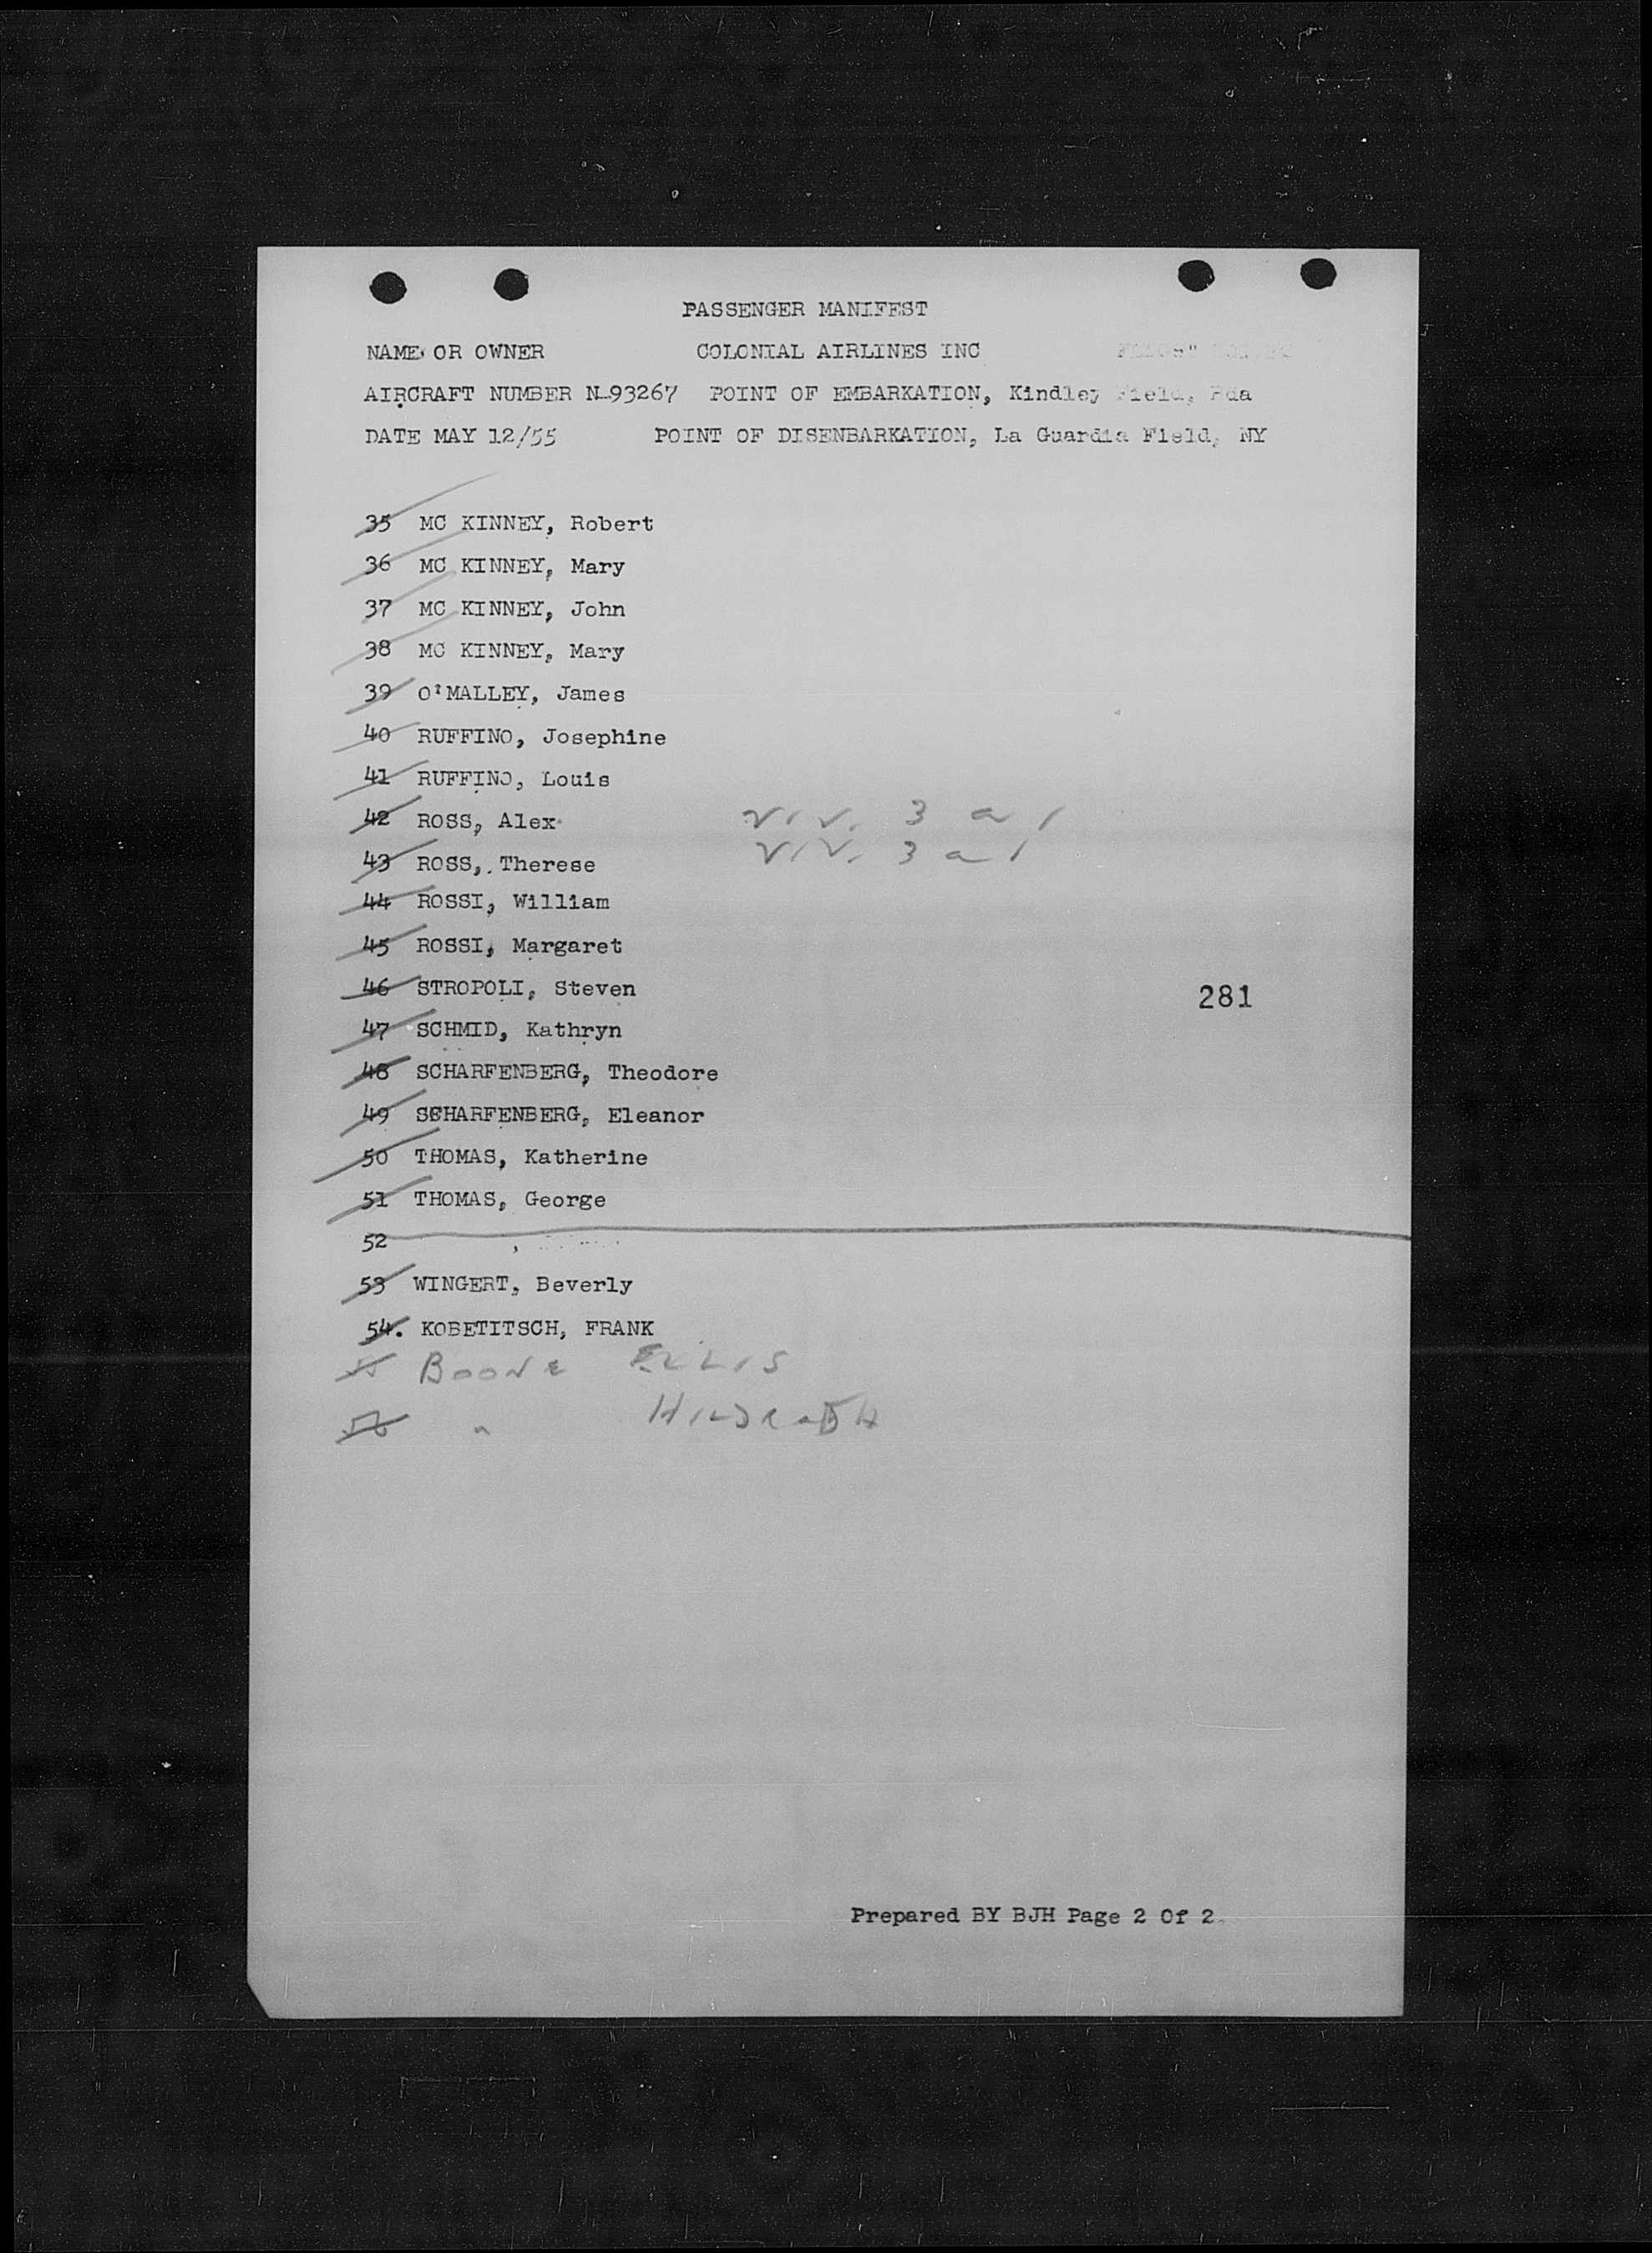 PASSENGER MANIFEST
NAME OR OWNER COLONIAL AIRLINES INC
AIRCRAFT NUMBER N-93267 POINT OF EMBARKATION, Kindley Field, Bda
DATE MAY 12/55 POINT OF DISENBARKATION, La Guardia Field, NY
35 MC KINNEY, Robert
36 MC KINNEY, Mary
37 MC KINNEY, John
38 MC KINNEY, Mary
39 O'MALLEY, James
40 RUFFINO, Josephine
41 RUFFINO, Louis
42 ROSS, Alex
43 ROSS, Therese
44 ROSSI, William
45 ROSSI, Margaret
46 STROPOLI, Steven
281
47 SCHMID, Kathryn
48 SCHARFENBERG, Theodore
49 SCHARFENBERG, Eleanor
50 THOMAS, Katherine
51 THOMAS, George
52
53 WINGERT, Beverly
54. KOBETITSCH, FRANK
55 BOONE ELLIS
56 "
Prepared BY BJH Page 2 Of 2